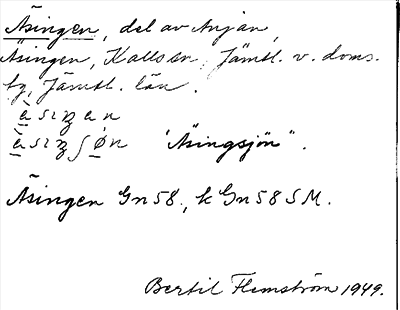 Äsingen, del av Anjan,
Äsingen, Kalls sn, Jämtl. v. doms.
Jämtl. län.
"Äsingsjön".
Äsingen Gn 58, k Gn 58 SM.
Bertil Flemström 1949.